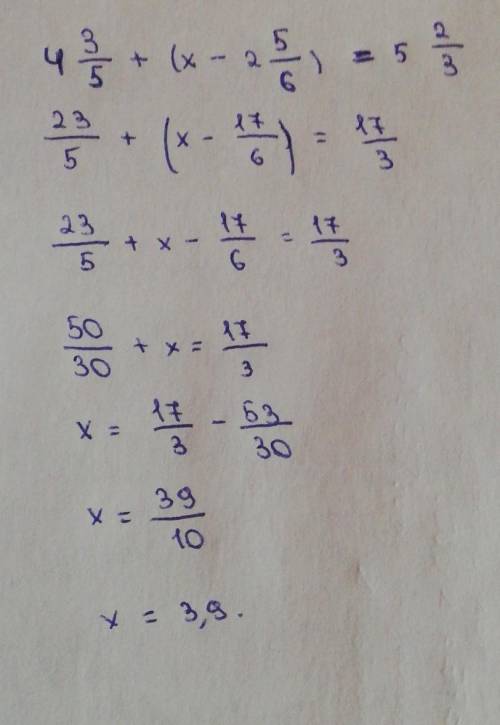 4 3/5 + (x - 2 5/6) = 5 2/3
23/5 + (x - 17/6) = 17/3
23/5 + x - 17/6 = 17/3
50/30 + x = 17/3
x = 17/3 - 53/30
x = 39/10
x = 3,9.